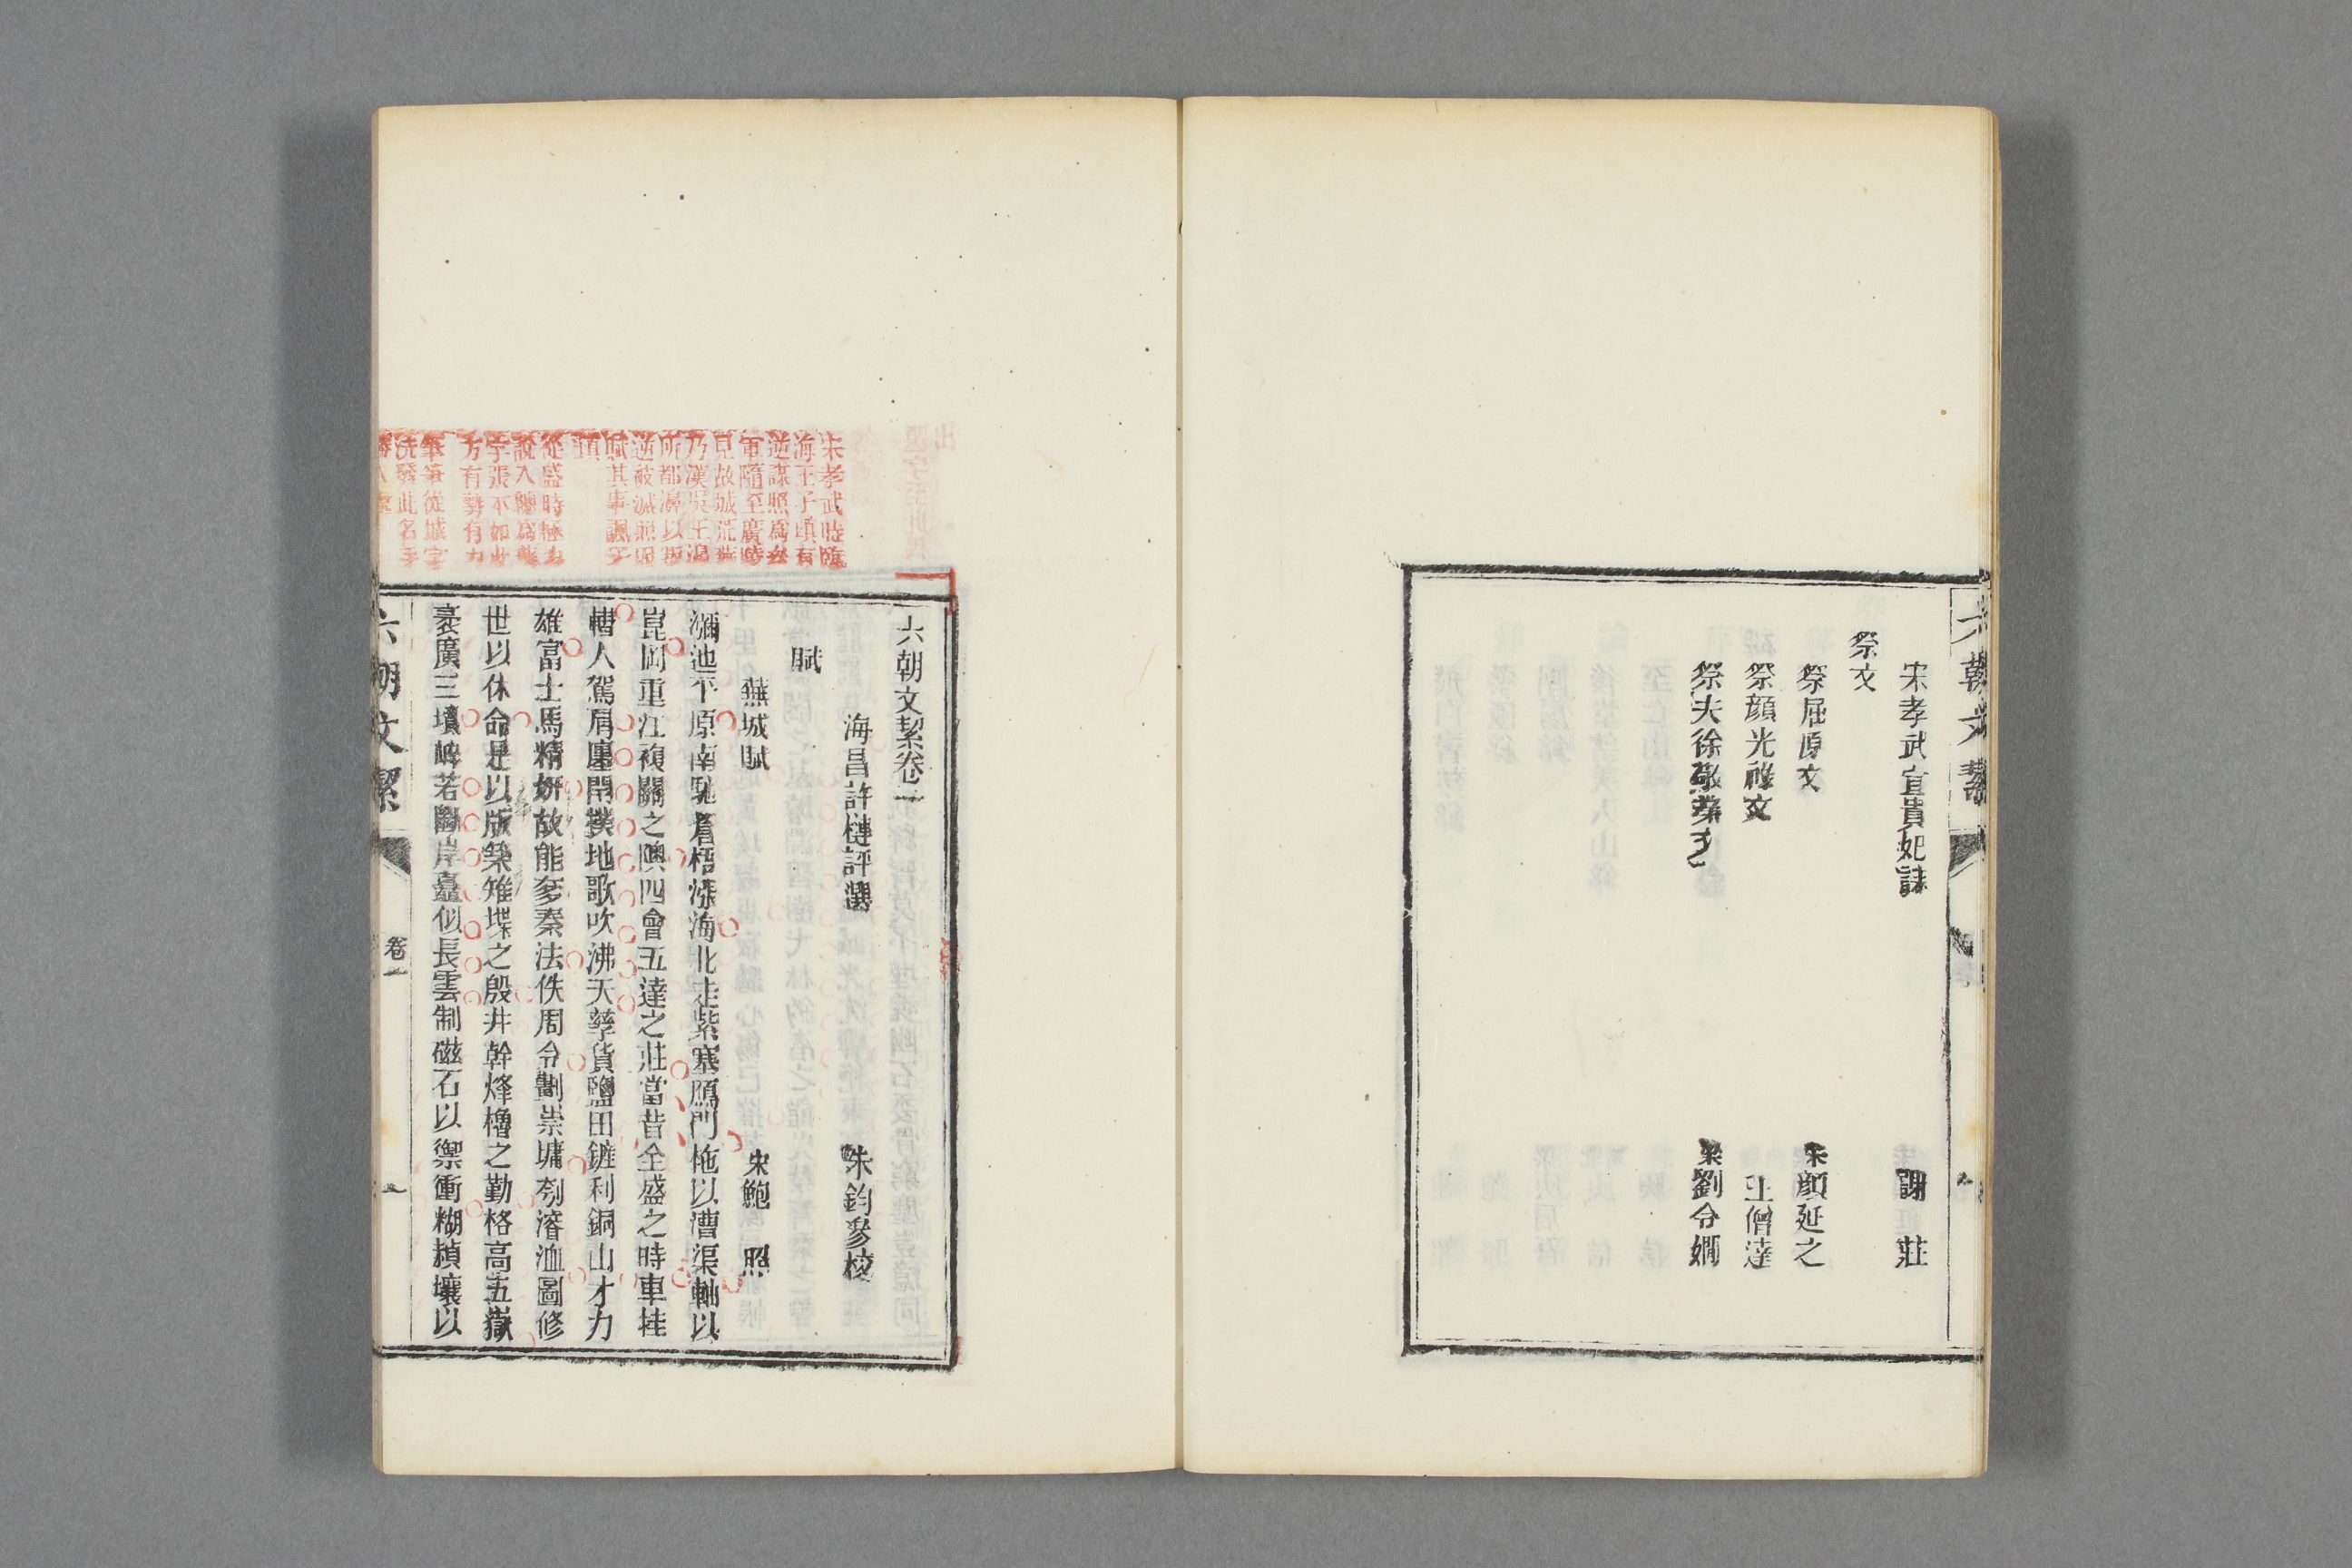 宋孝武宣貴妃誄 謝 莊
祭文
祭屈原文 宋顏延之
祭顏光祿文 王僧達
祭夫徐敬業文 梁劉令嫺
六朝文絜
宋孝武時臨
海王子頊有
逆謀照爲參
軍隨至廣陵
見故城荒蕪
乃漢吳王濞
所都濞以叛
逆被滅照因
賦其事諷子
頊
從盛時極力
說入總爲蕪
字張本如此
方有勢有力
筆筆從城字
洗發此名手
勝人處
六朝文絜卷一
海昌許槤評選 朱鈞參校
賦
蕪城賦 宋鮑 照
瀰迆平原南馳蒼梧漲海北走紫塞鴈門柂以漕渠軸以
崑岡重江複關之隩四會五達之莊當昔全盛之時車挂
轊人駕肩廛閈撲地歌吹沸天孳貨鹽田鏟利銅山才力
雄富士馬精妍故能奓秦法佚周令劃崇墉刳濬洫圖修
世以休命是以版築雉堞之殷井幹烽櫓之勤格高五嶽
袤廣三墳崪若斷岸矗似長雲制磁石以禦衝糊赬壤以
六朝文絜 卷一